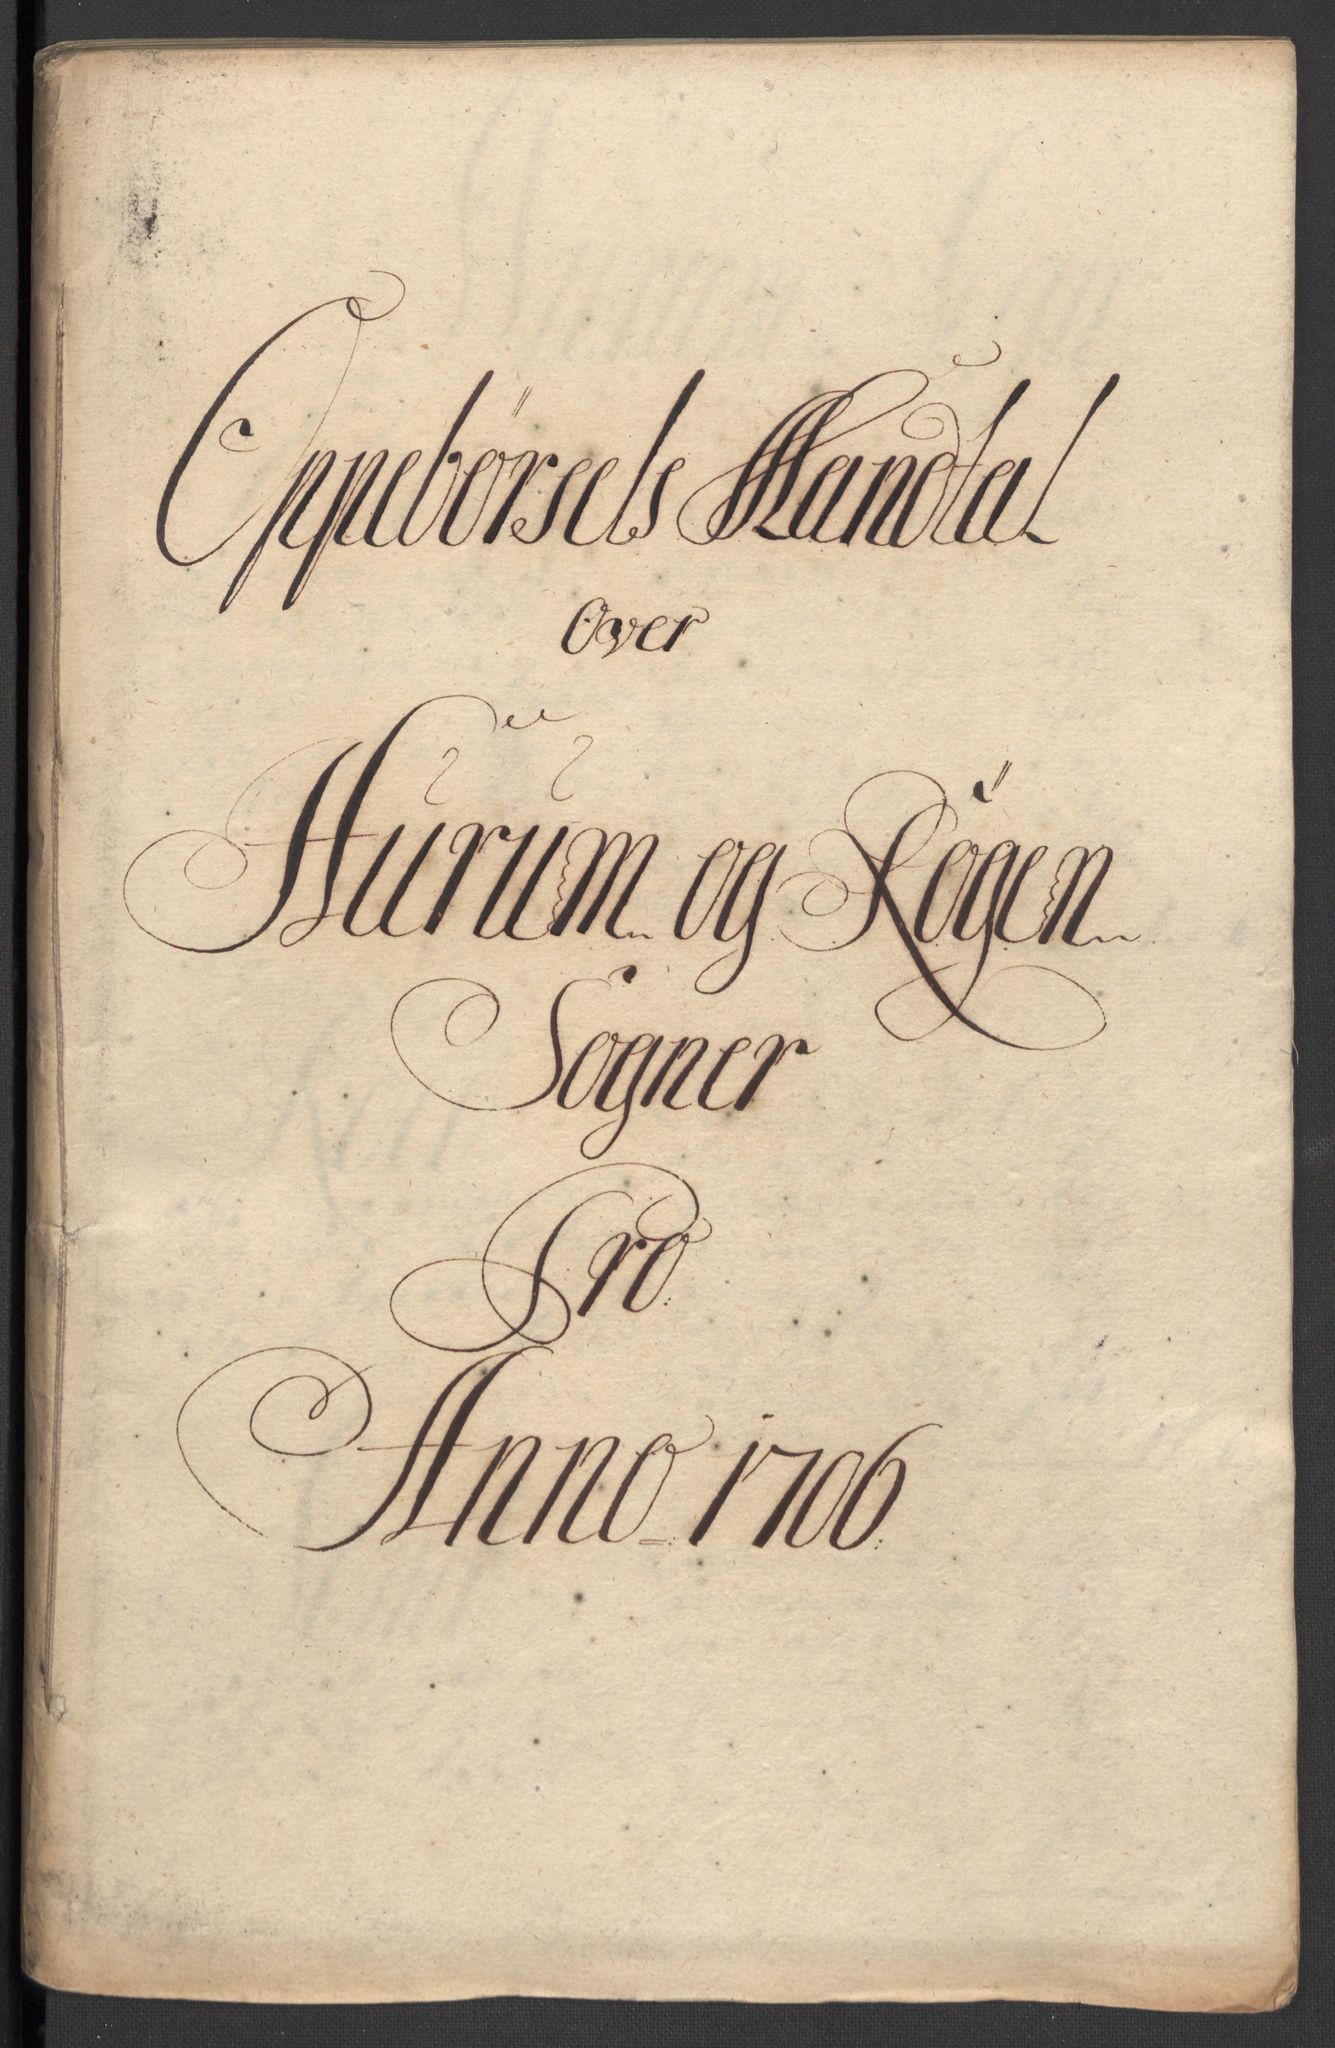 Oppebørsels Mandtal
Over
Hürüm og Røgen
Sogner
Pro
Anno 1706